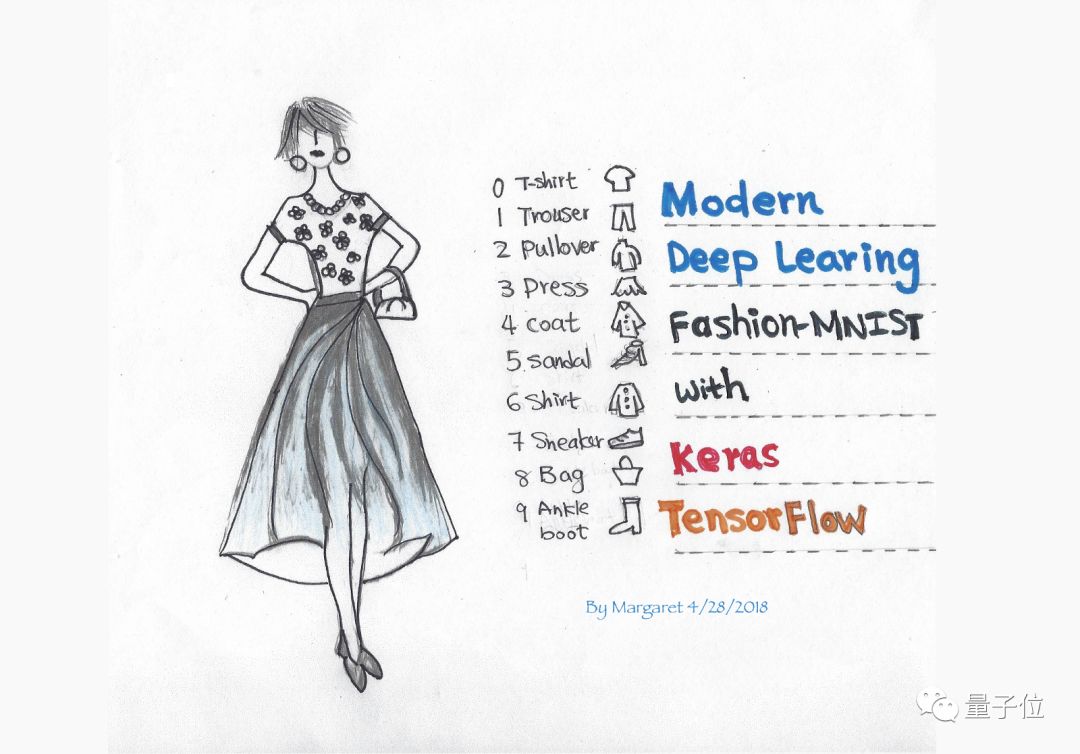 0 T-shirt
1 Trouser
2 Pullover
3 Dress
4 Coat
5 Sandal
6 Shirt
7 Sneaker
8 Bag
9 Ankle
boot
Modern
Deep Learing
Fashion-MNIST
with
Keras
TensorFlow
By Margaret 4/28/2018
量子位